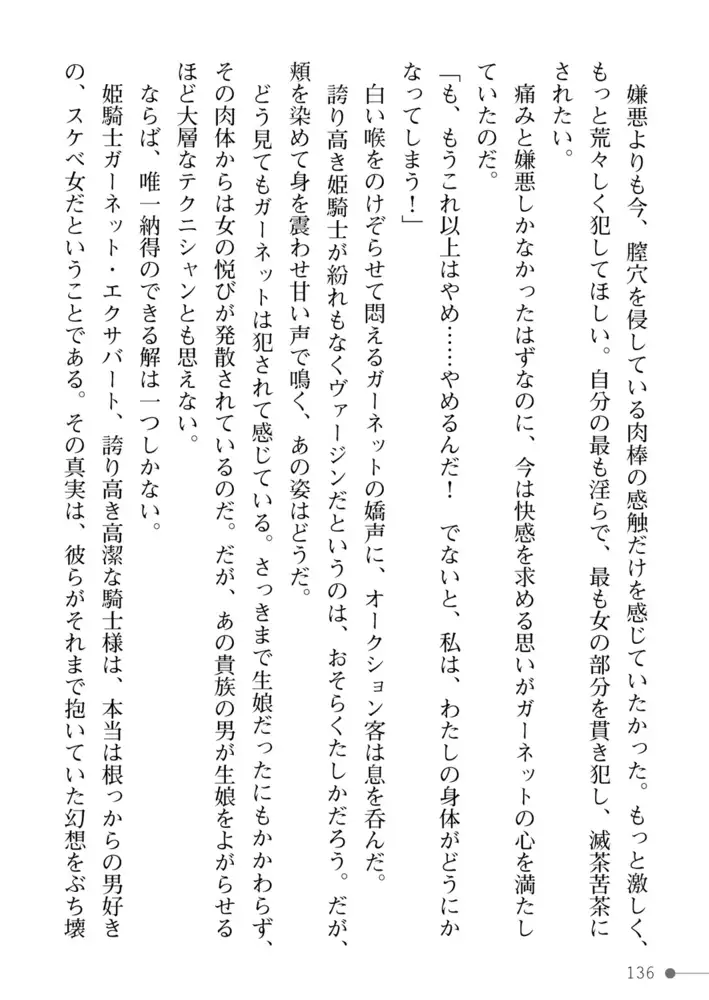 嫌悪よりも今、膣穴を侵している肉棒の感触だけを感じていたかった。もっと激しく、
もっと荒々しく犯してほしい。自分の最も淫らで、最も女の部分を貫き犯し、滅茶苦茶に
されたい。
痛みと嫌悪しかなかったはずなのに、今は快感を求める思いがガーネットの心を満たし
ていたのだ。
「も、もうこれ以上はやめ……やめるんだ！　でないと、私は、わたしの身体がどうにか
なってしまう！」
白い喉をのけぞらせて悶えるガーネットの嬌声に、オークション客は息を呑んだ。
誇り高き姫騎士が紛れもなくヴァージンだというのは、おそらくたしかだろう。だが、
頬を染めて身を震わせ甘い声で鳴く、あの姿はどうだ。
どう見てもガーネットは犯されて感じている。さっきまで生娘だったにもかかわらず、
その肉体からは女の悦びが発散されているのだ。だが、あの貴族の男が生娘をよがらせる
ほど大層なテクニシャンとも思えない。
ならば、唯一納得のできる解は一つしかない。
姫騎士ガーネット・エクサバート、誇り高き高潔な騎士様は、本当は根っからの男好き
の、スケベ女だということである。その真実は、彼らがそれまで抱いていた幻想をぶち壊
136